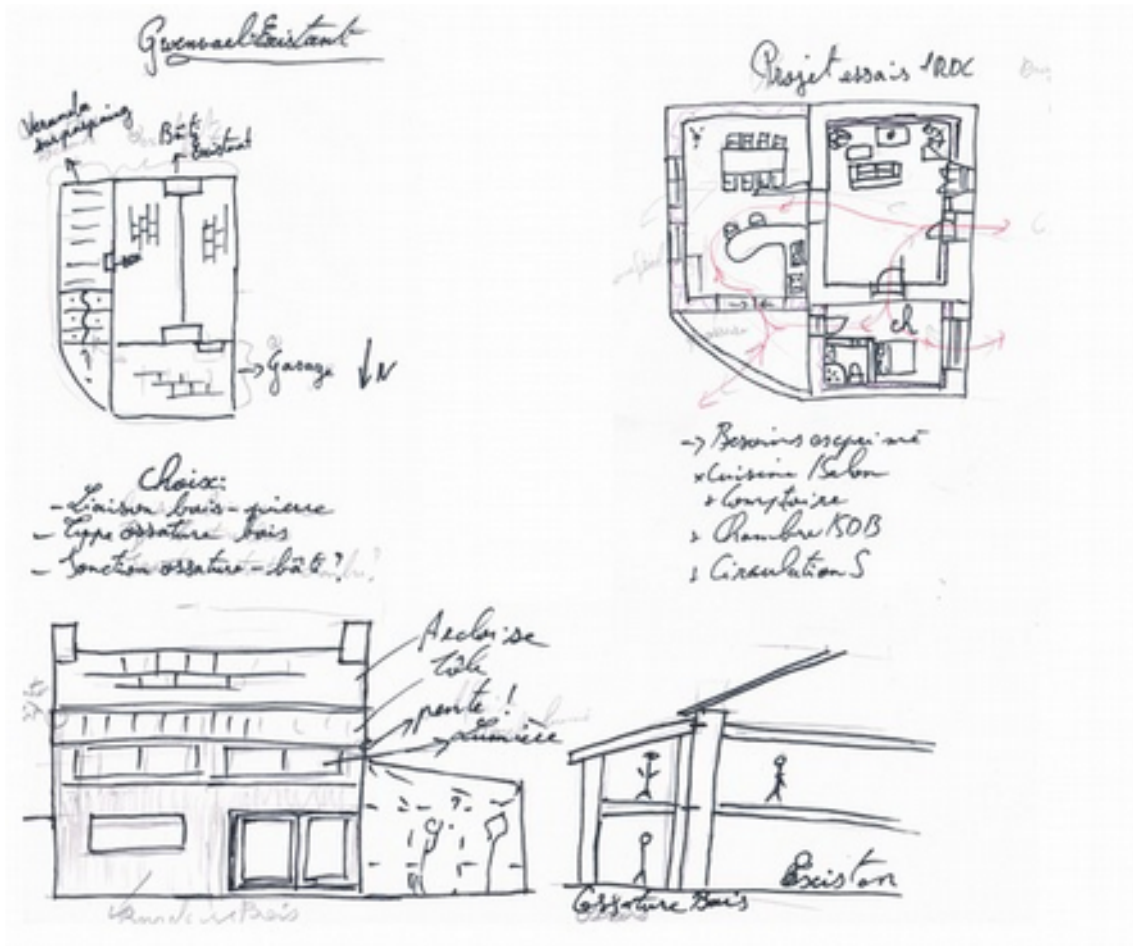 Gwenael Existant
Veranda
sur parpaing
Bâti
Existant
Garage
N
?
Choix:
- Liaison bois - pierre
- Type ossature bois
- Jonction ossature - bâti ?
Projet essais 1 RDC
ch
-> Besoins exprimé
x Cuisine
+ Comptoire
Chambre SDB
Circulation S
tôle
pente !
Lumière
Ossature Bois
Existan